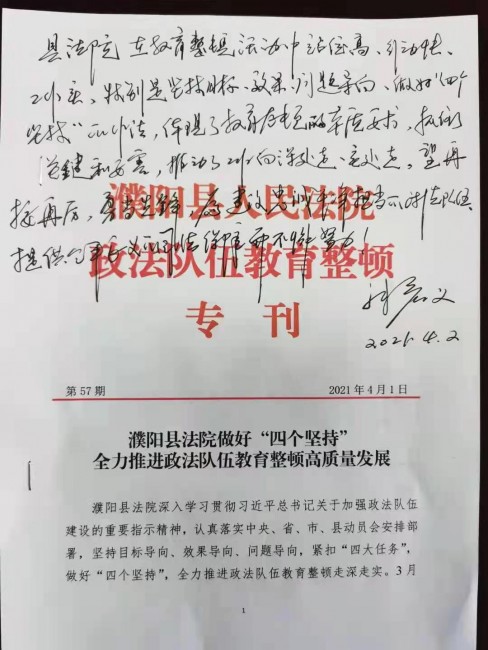 县法院在教育整顿活动中站位高、行动快、
工作实、特别是坚持目标、效果、问题导向、做好“四个
坚持”
体现了教育整顿的
推动了工作向深处走、实处走。望再
接再厉,
提供
不懈努力!
2021.4.2
濮阳县人民法院
政法队伍教育整顿
专 刊
第 57 期
2021 年 4 月 1 日
濮阳县法院做好“四个坚持”
全力推进政法队伍教育整顿高质量发展
濮阳县法院深入学习贯彻习近平总书记关于加强政法队伍
建设的重要指示精神,认真落实中央、省、市、县动员会安排部
署,坚持目标导向、效果导向、问题导向,紧扣“四大任务”,
做好“四个坚持”,全力推进政法队伍教育整顿走深走实。3 月
1